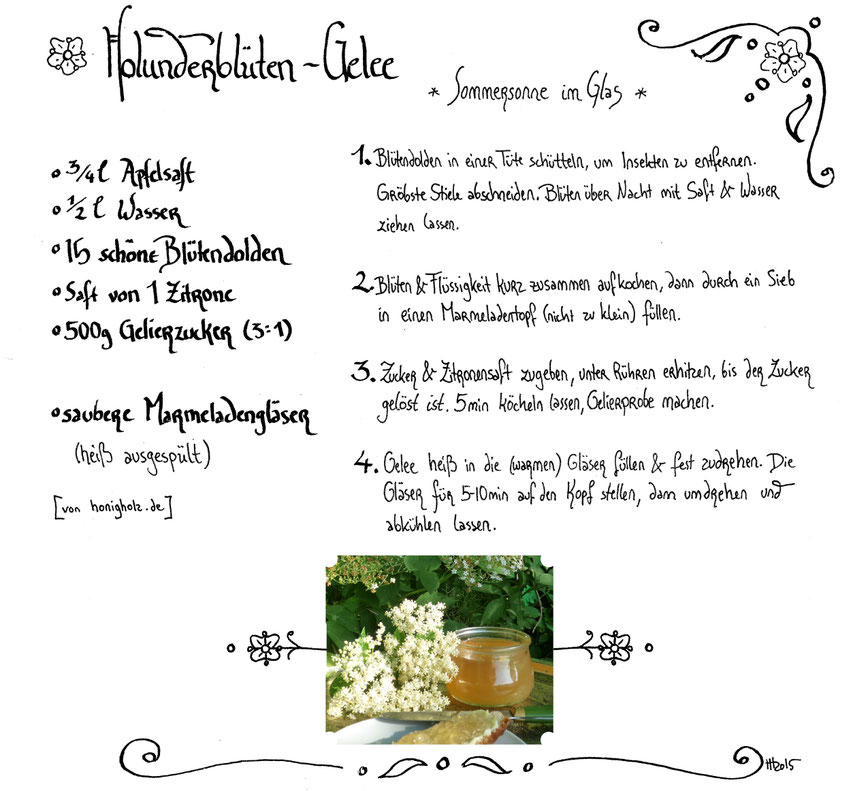 Holunderblüten - Gelee
* Sommersonne im Glas *
3/4 l Apfelsaft
1/2 l Wasser
15 schöne Blütendolden
Saft von 1 Zitrone
500g Gelierzucker (3:1)
saubere Marmeladengläser
(heiß ausgespült)
[von honigholz.de]
1. Blütendolden in einer Tüte schütteln, um Insekten zu entfernen.
Gröbste Stiele abschneiden. Blüten über Nacht mit Saft & Wasser
ziehen lassen.
2. Blüten & Flüssigkeit kurz zusammen aufkochen, dann durch ein Sieb
in einen Marmeladentopf (nicht zu klein) füllen.
3. Zucker & Zitronensaft zugeben, unter Rühren erhitzen, bis der Zucker
gelöst ist. 5min köcheln lassen, Gelierprobe machen.
4. Gelee heiß in die (warmen) Gläser füllen & fest zudrehen. Die
Gläser für 5-10min auf den Kopf stellen, dann umdrehen und
abkühlen lassen.
2015